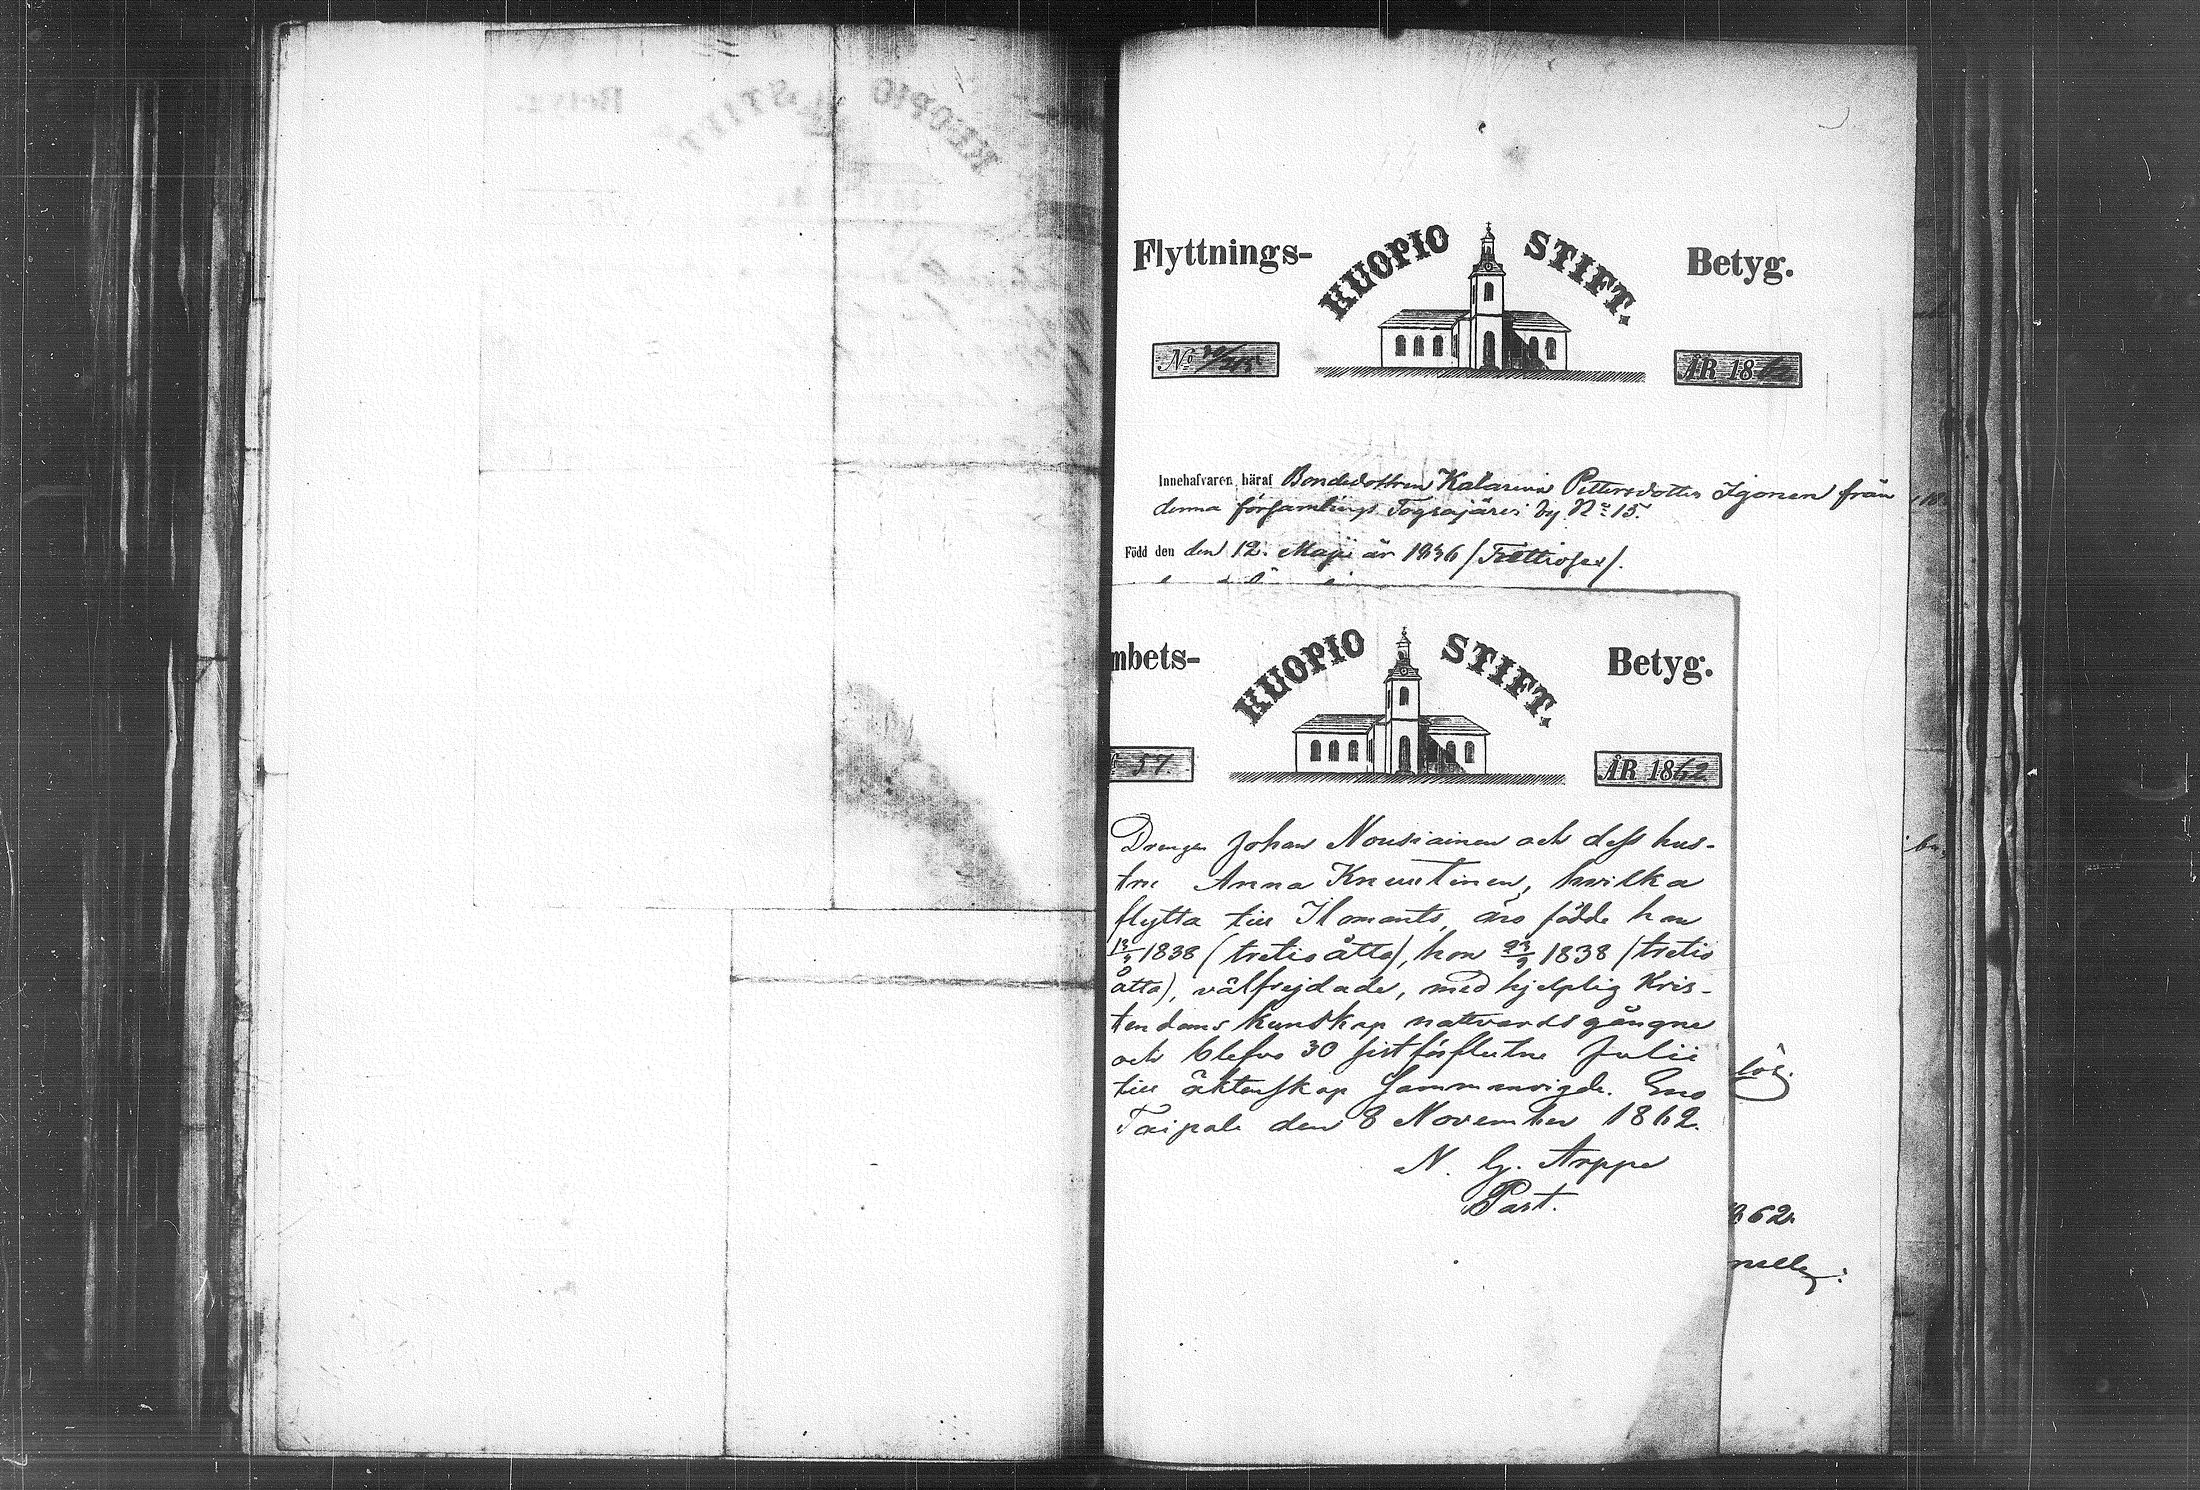 Flyttnings- KUOPIO STIFT. Betyg.
No 30/215 ÅR 1862
Innehafvaren häraf Bondedottren Katarina Pettersdotter Igonen från
denna församlings Tograjärvi by No 15.
Född den den 12. Maji år 1836 (Trettiosex).
mbets- KUOPIO STIFT. Betyg.
57. ÅR 1862
Drengen Johan Nousiainen och dess hus-
tru Anna Knuutinen, hvilka
flytta till Ilomants, äro födde han
13/4 1838 (tretio åtta), hon 23/9 1838 (tretio
åtta), välfrejdade, med hjelplig Kris-
tendoms kunskap nattvardsgångne
och blefvo 30 sistförflutne Julii
till äktenskap sammanvigde. Eno
Taipale den 8 November 1862.
N. G. Arppe
Past.
862.